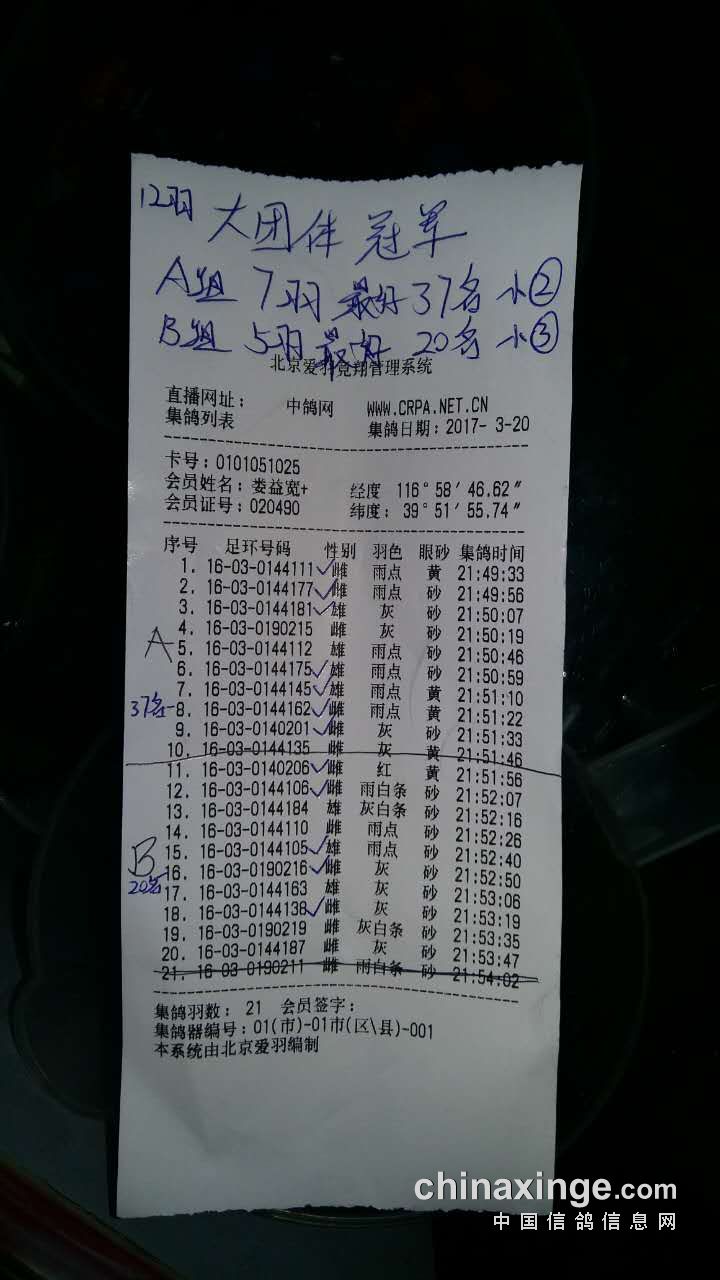 12羽 大团体 冠军
A组 7羽 最好37名 小②
B组 5羽 最好 20名 小③
北京爱羽竞翔管理系统
直播网址: 中鸽网 WWW.CRPA.NET.CN
集鸽列表 集鸽日期:2017- 3-20
卡号:0101051025
会员姓名:娄益宽+ 经度 116°58′46.62″
会员证号:020490 纬度: 39°51′55.74″
序号 足环号码 性别 羽色 眼砂 集鸽时间
1. 16-03-0144111✓雌 雨点 黄 21:49:33
2. 16-03-0144177✓雌 雨点 砂 21:49:56
3. 16-03-0144181✓雄 灰 砂 21:50:07
4. 16-03-0190215 雌 灰 砂 21:50:19
A 5. 16-03-0144112 雄 雨点 砂 21:50:46
6. 16-03-0144175✓雄 雨点 砂 21:50:59
7. 16-03-0144145✓雄 雨点 黄 21:51:10
37名-8. 16-03-0144162✓雌 雨点 黄 21:51:22
9. 16-03-0140201✓雌 灰 砂 21:51:33
10. 16-03-0144135 雌 灰 黄 21:51:46
11. 16-03-0140206✓雌 红 黄 21:51:56
12. 16-03-0144106✓雌 雨白条 砂 21:52:07
13. 16-03-0144184 雄 灰白条 砂 21:52:16
14. 16-03-0144110 雌 雨点 砂 21:52:26
B 15. 16-03-0144105✓雄 雨点 砂 21:52:40
20名 16. 16-03-0190216✓雌 灰 砂 21:52:50
17. 16-03-0144163 雄 灰 砂 21:53:06
18. 16-03-0144138✓雌 灰 砂 21:53:19
19. 16-03-0190219 雌 灰白条 砂 21:53:35
20. 16-03-0144187 雌 灰 砂 21:53:47
21. 16-03-0190211 雌 雨白条 砂 21:54:02
集鸽羽数: 21 会员签字:
集鸽器编号:01(市)-01市(区\县)-001
本系统由北京爱羽编制
chinaxinge.com
中国信鸽信息网